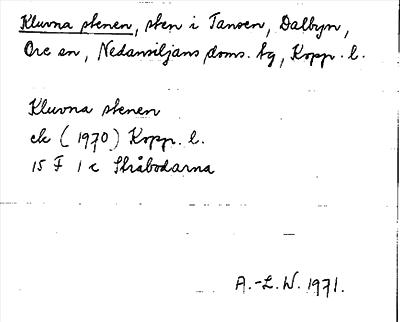 Kluvna stenen, sten i Tansen, Dalbyn,
Ore sn, Nedansiljans doms. tg, Kopp. l.
Kluvna stenen
ek (1970) Kopp. l.
15 F 1 c Skråbodarna
A.-L. W. 1971.